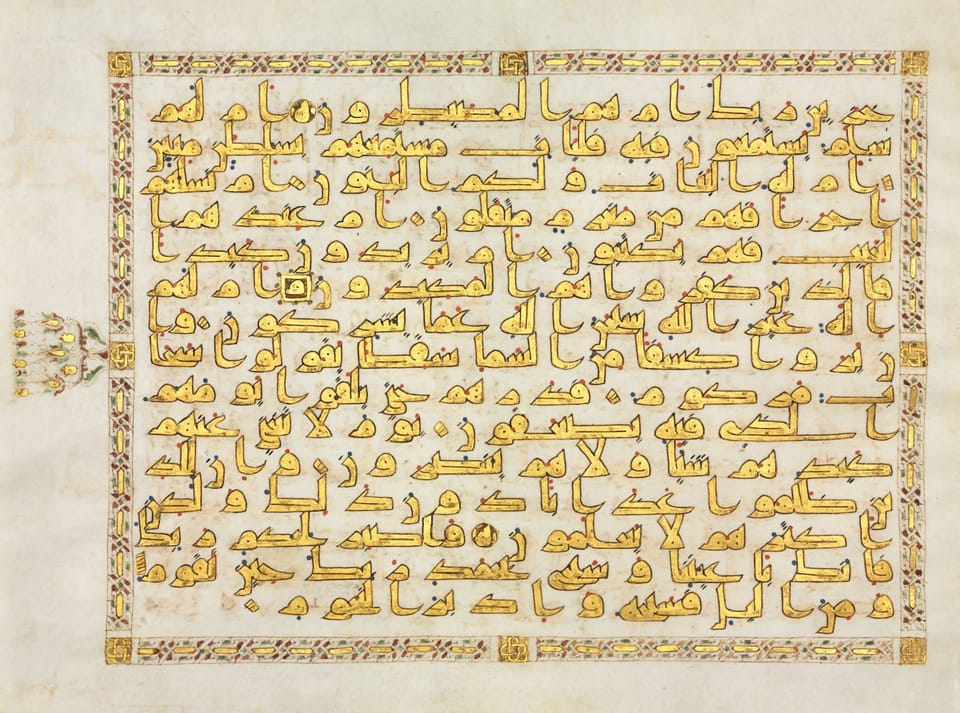 خزين ربك ام هم المصيطرون ام لهم
سلم يستمعون فيه فليات مستمعهم بسلطن مبين
ام له البنت ولكم البنون ام تسلهم
اجرا فهم من مغرم مثقلون ام عندهم ا
لغيب فهم يكتبون ام يريدون كيدا
فالذين كفروا هم المكيدون ام لهم
اله غير الله سبحن الله عما يشركون وا
ن يروا كسفا من السما سقطا يقولوا سحا
ب مركوم فذرهم حتى يلقوا يومهم
الذي فيه يصعقون يوم لا يغني عنهم
كيدهم شيا ولا هم ينصرون وان للذ
ين ظلموا عذابا دون ذلك ولكن
اكثرهم لا يعلمون واصبر لحكم ربك
فانك باعيننا وسبح بحمد ربك حين تقوم
ومن اليل فسبحه وادبر النجوم